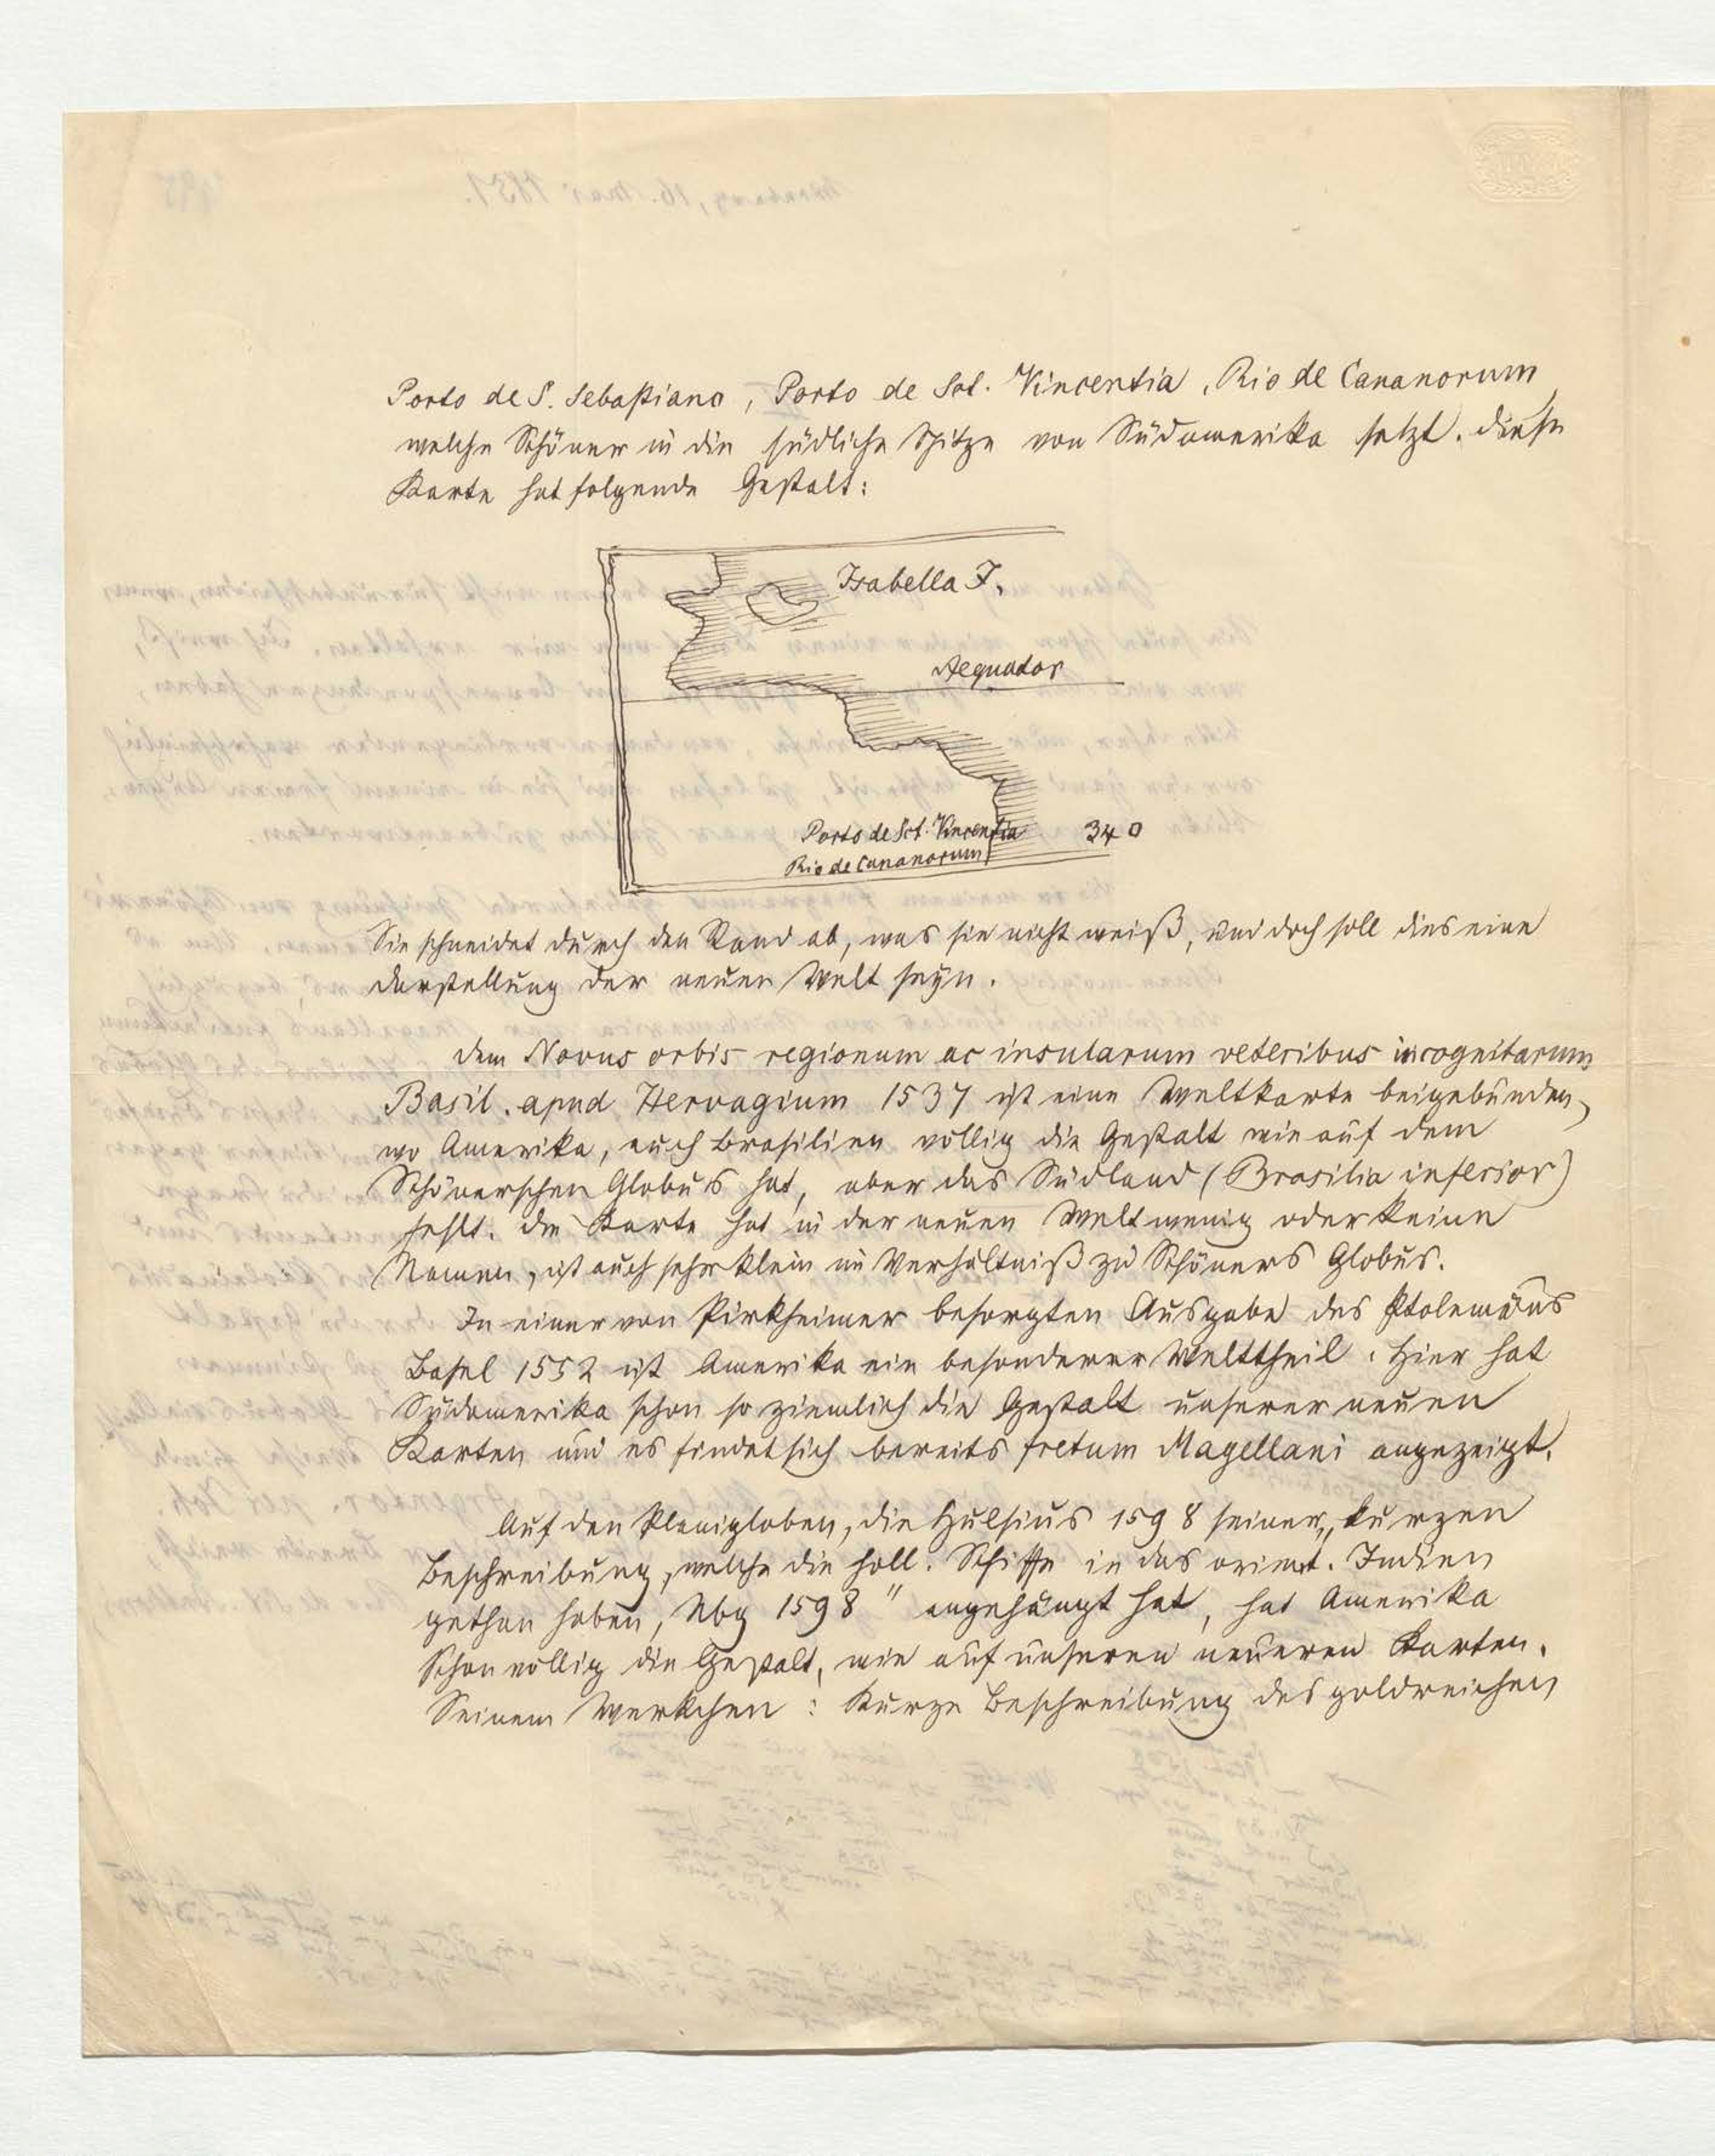 Porto de S. Sebastiano, Porto de Sct. Vincentia, Rio de Cananorum
welche Schöner in die südliche Spitze von Südamerika setzt. Diese
Karte hat folgende Gestalt:
Isabella I.
Aequator
Porto de Sct. Vincentia 340
Rio de Cananorum
Sie schneidet durch den Rand ab, was sie nicht weiß, und doch soll dies eine
Darstellung der neuen Welt seyn.
Dem Novus orbis regionum ac insularum veteribus incognitarum
Basil. apud Hervagium 1537 ist eine Weltkarte beigebunden,
wo Amerika, auch Brasilien völlig die Gestalt wie auf dem
Schönerschen Globus hat, aber das Südland (Brasilia inferior)
fehlt. Die Karte hat in der neuen Welt wenig oder keine
Namen, ist auch sehr klein im Verhältniß zu Schöners Globus.
In einer von Pirkheimer besorgten Ausgabe des Ptolemäus
Basel 1552 ist Amerika ein besonderer Welttheil. Hier hat
Südamerika schon so ziemlich die Gestalt unserer neuen
Karten und es findet sich bereits fretum Magellani angezeigt.
Auf den Planigloben, die Hulsius 1598 seiner „kurzen
Beschreibung, welche die holl. Schiffe in das orient. Indien
gethan haben, Nbg 1598" angehängt hat, hat Amerika
schon völlig die Gestalt, wie auf unseren neueren Karten.
Seinem Werkchen: Kurze Beschreibung des goldreichen